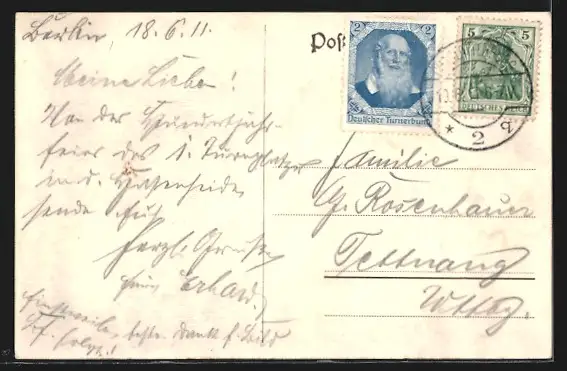 Berlin, 18.6.11.
Meine Liebe!
Von der Hundertjahr-
feier des 1. Turnplatzes
in d. Hasenheide
sende Euch
herzl. Grüße
Erhard.
besten Dank f. Bild
Brf. folgt!
Post
2 2
Deutscher Turnerbund
5 5
DEUTSCHES REICH
* 2
Familie
G. Rosenhauer
Tettnang
Wttbg.